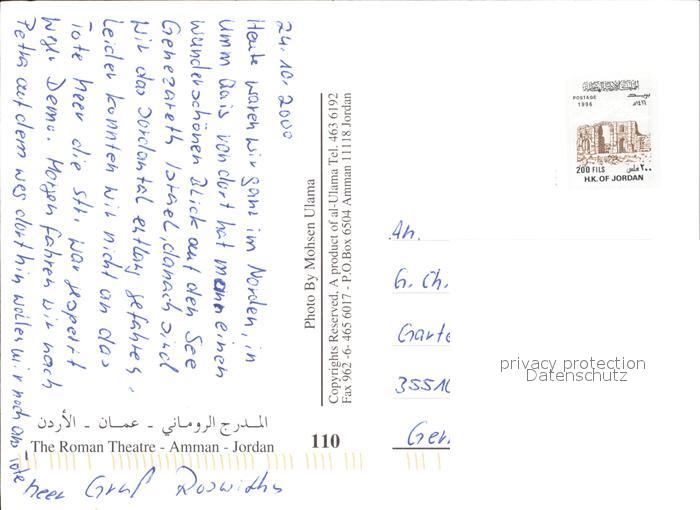 24.10.2000
Heute waren wir ganz im Norden, in
Umm Qais von dort hat man einen
wunderschönen Blick auf den See
Genezareth Israel, danach sind
wir das Jordantal entlang gefahren,
Leider konnten wir nicht an das
Tote Meer die Str. war gesperrt
wegen Demo. Morgen fahren wir nach
Petra auf dem Weg dorthin wollen wir noch ans Tote
Meer Gruß Roswitha
المدرج الروماني - عمان - الأردن
The Roman Theatre - Amman - Jordan
110
Photo By Mohsen Ulama
Copyrights Reserved, A product of al-Ulama Tel. 463 6192
Fax 962 -6- 465 6017 - P.O.Box 6504 Amman 11118 Jordan
المملكة الأردنية الهاشمية
POSTAGE بريد
1996 ١٤١٦هـ
200 FILS ٢٠٠ فلس
H.K. OF JORDAN
An.
G. Ch.
Garte
3551
Ger
privacy protection
Datenschutz